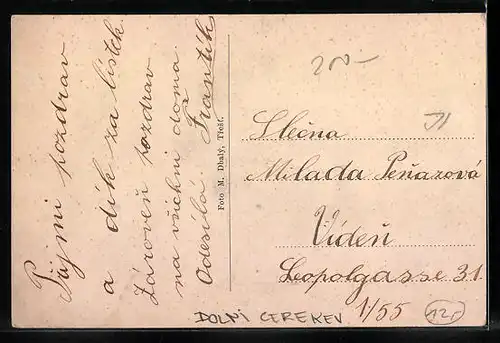 Přijmi pozdrav
a dík za lístek
Zároveň pozdrav
na všichni doma
Odesílá Frantík
Foto M. Dhalý, Třešť.
200-
Slečna
Milada Peňazová
Vídeň
Leopolgasse 31
1/55
DOLNI CEREKEV